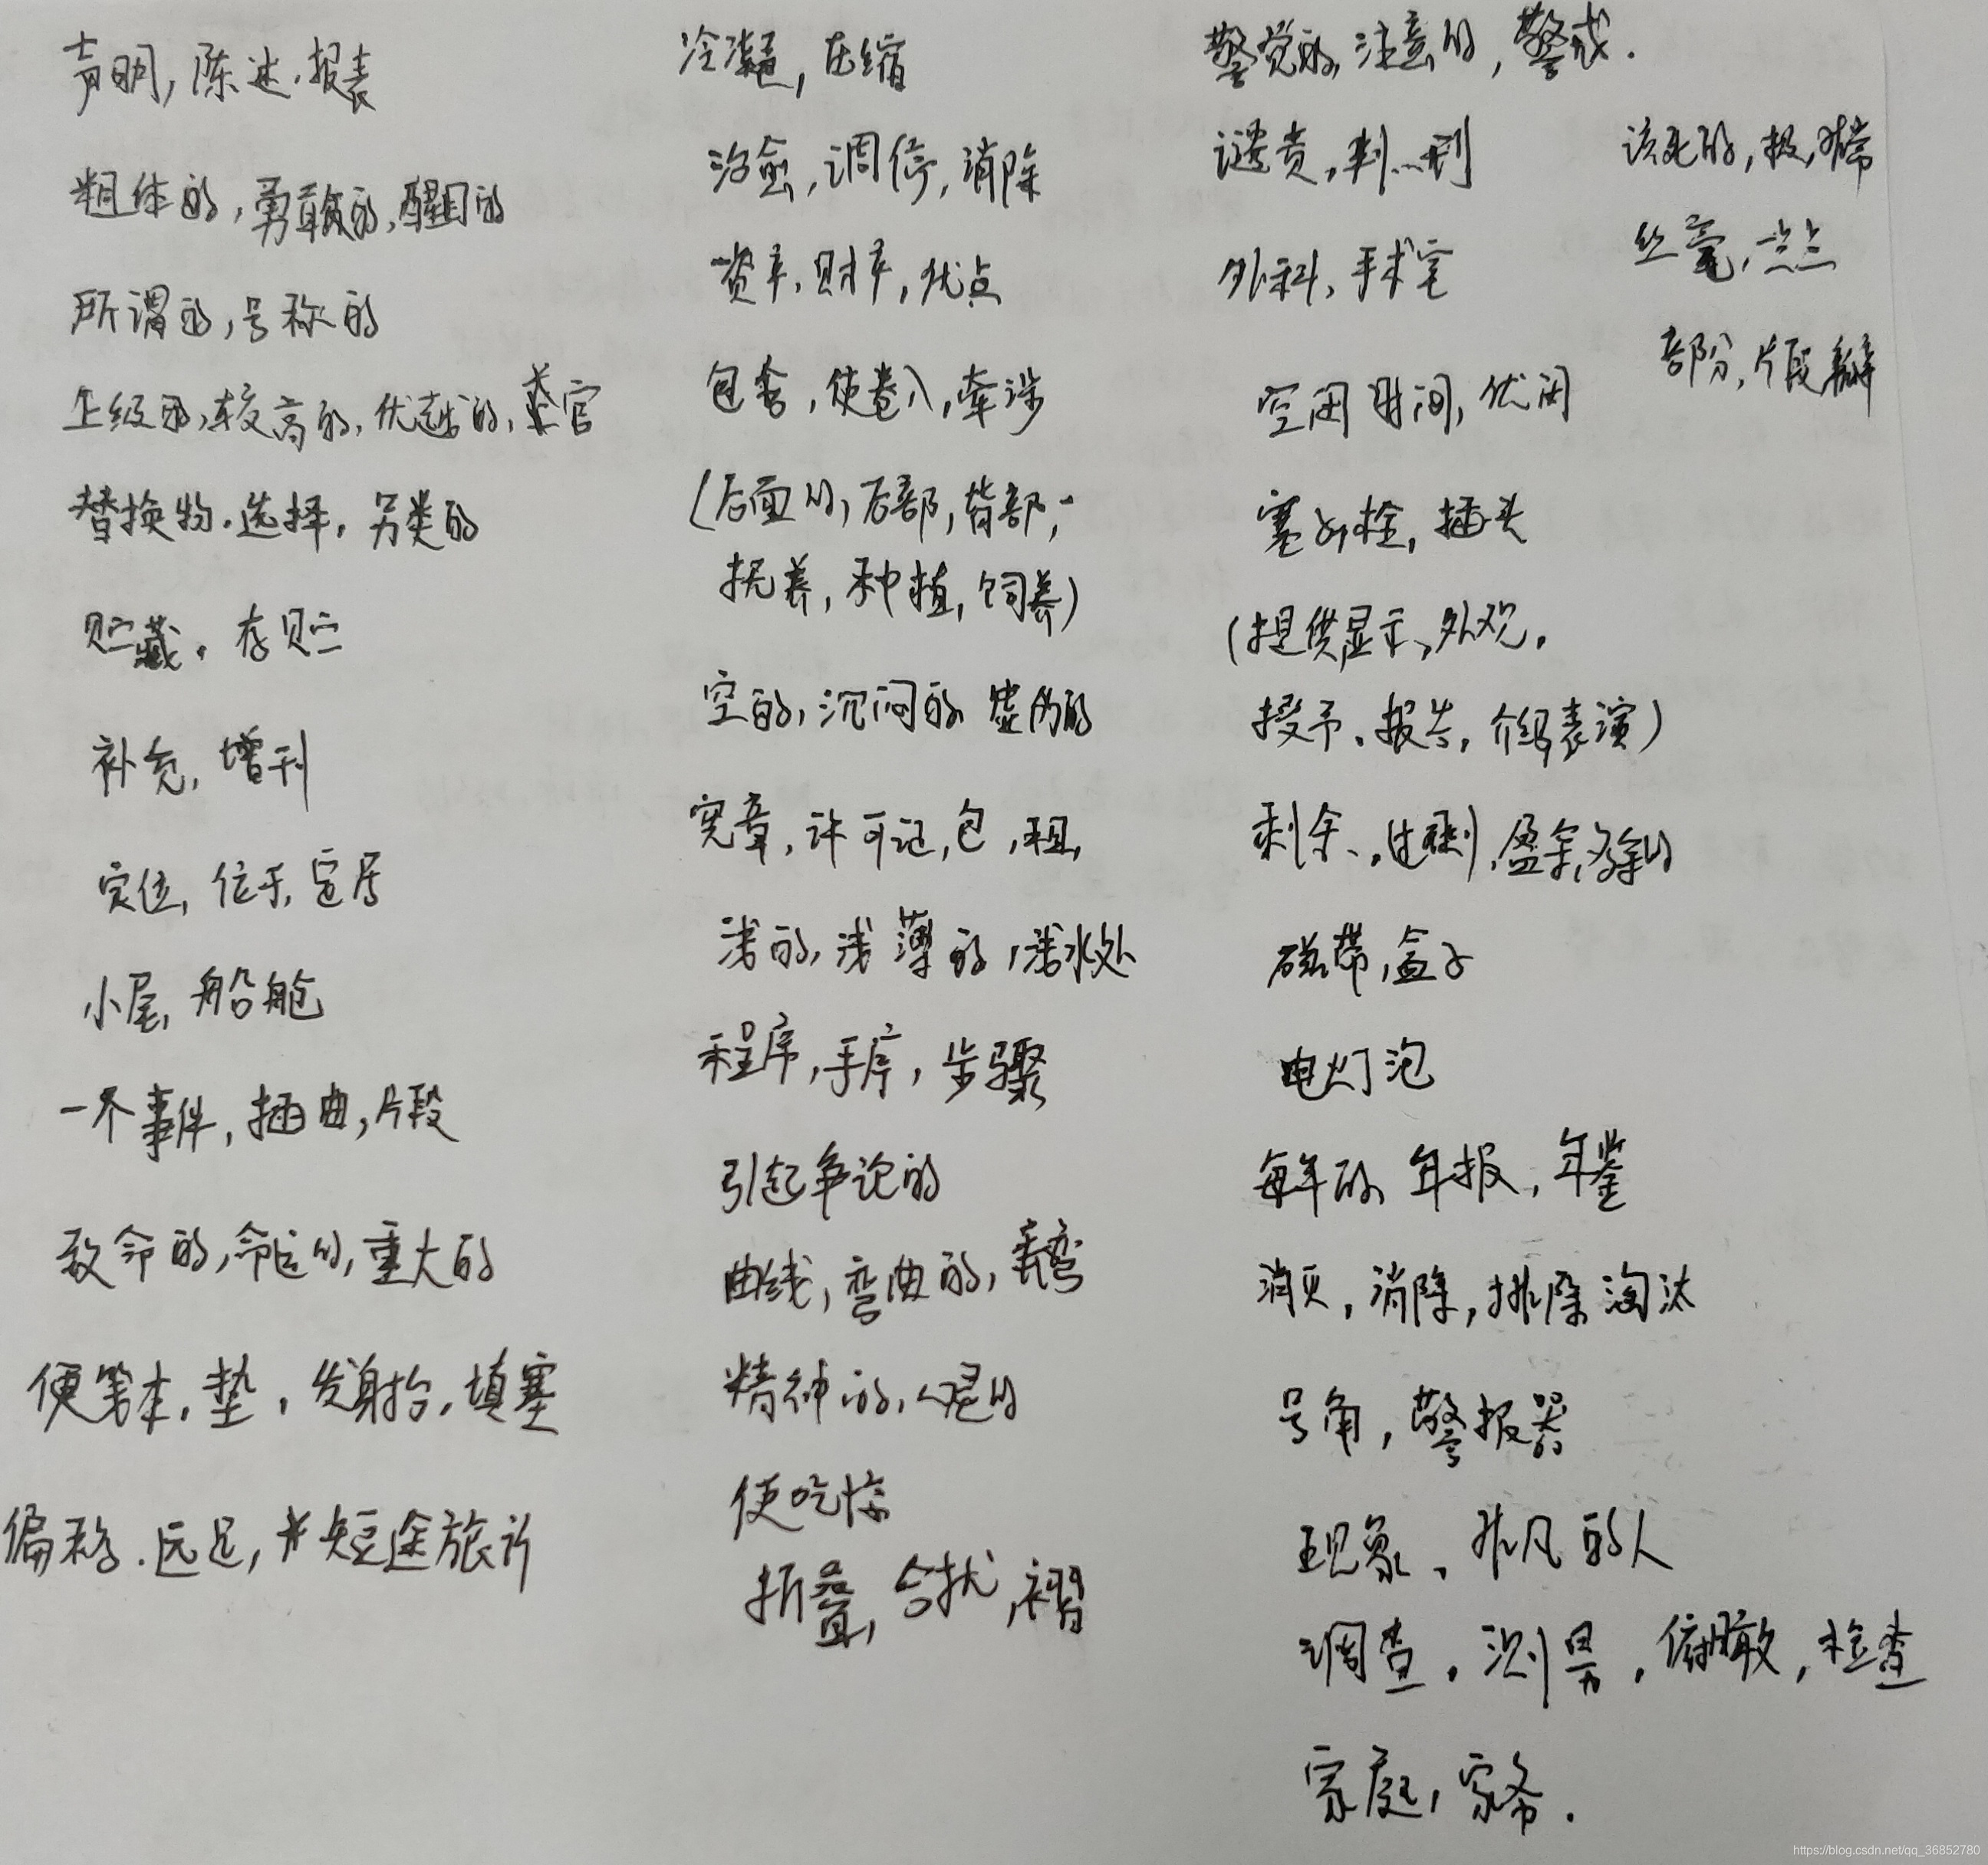 声明,陈述.报表
粗体的,勇敢的,醒目的
所谓的,号称的
上级的,较高的,优越的,长官
替换物.选择,另类的
贮藏.存贮
补充,增刊
定位,位于,定居
小屋,船舱
一个事件,插曲,片段
致命的,命运的,重大的
便笺本,垫,发射台,填塞
偏移.远足,短途旅行
冷凝,压缩
治愈,调停,消除
资产,财产,优点
包含,使卷入,牵涉
(后面的,后部,背部,
抚养,种植,饲养)
空的,沉闷的 虚伪的
宪章,许可证,包,租,
浅的,浅薄的,浅水处
程序,手序,步骤
引起争论的
曲线,弯曲的,弄弯
精神的,心理的
使吃惊
折叠,合拢,褶
警觉的,注意的,警戒.
谴责,判…刑
外科,手术室
空闲时间,优闲
塞子,栓,插头
(提供,显示,外观,
授予.报告,介绍,表演)
剩余,过剩,盈余,多余的
磁带,盒子
电灯泡
每年的,年报,年鉴
消灭,消除,排除 淘汰
号角,警报器
现象,非凡的人
调查,测量,俯瞰,检查
家庭,家务.
该死的,极,非常
丝毫,一点点
部分,片段,瓣
https://blog.csdn.net/qq_36852780